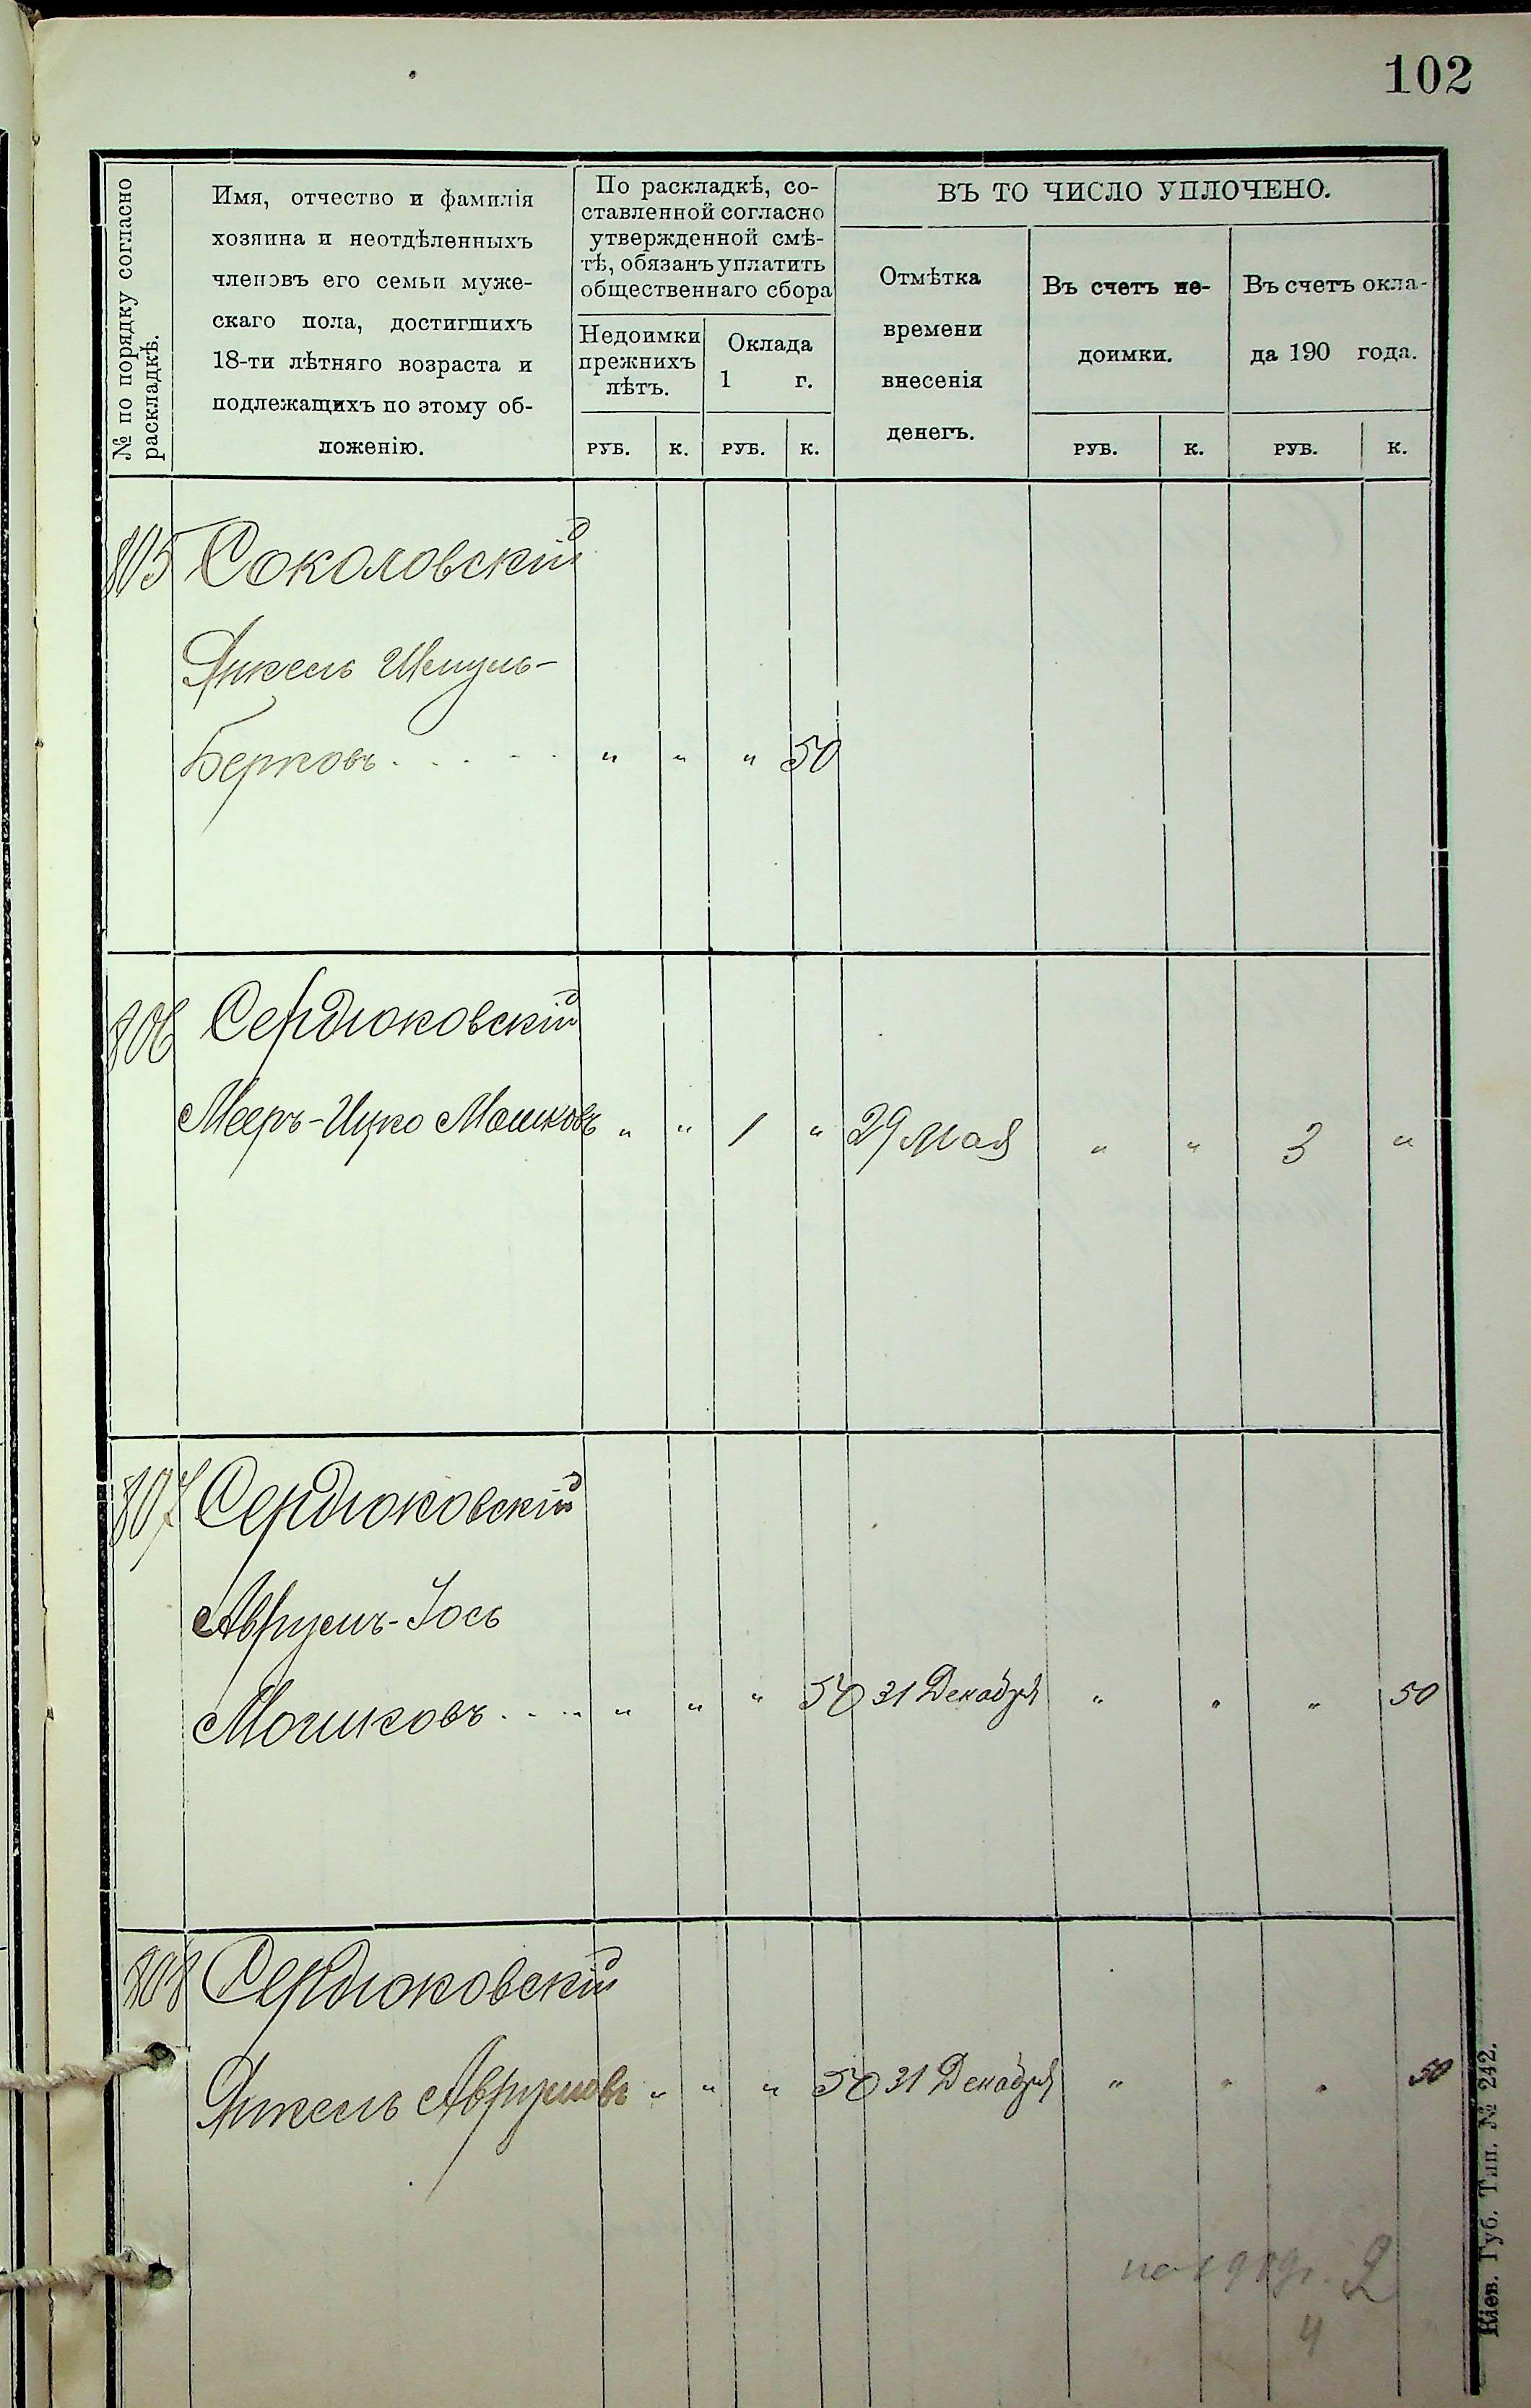 102
№ по порядку согласно
раскладкѣ.
Имя, отчество и фамилія
хозяина и неотдѣленныхъ
членовъ его семьи муже-
скаго пола, достигшихъ
18-ти лѣтняго возраста и
подлежащихъ по этому об-
ложенію.
По раскладкѣ, со-
ставленной согласно
утвержденной смѣ-
тѣ, обязанъ уплатить
общественнаго сбора
Недоимки
прежнихъ
лѣтъ.
Оклада
1 г.
ВЪ ТО ЧИСЛО УПЛОЧЕНО.
Отмѣтка
времени
внесенія
денегъ.
Въ счетъ не-
доимки.
Въ счетъ окла-
да 190 года.
РУБ. К. РУБ. К. РУБ. К. РУБ. К.
805 Соколовскій
Янкель Шмуль-
Берковъ . . . - - " " " 50
806 Сердюковскій
Мееръ-Ицко Мошковъ " " 1 " 29 мая " " 3 "
807 Сердюковскій
Аврумъ-Іось
Мошковъ . . . . " " " 50 31 Декабря " " " 50
808 Сердюковскій
Янкель Аврумовъ " " " 50 31 Декабря " " " 50
2
4
Кіев. Губ. Тип. № 242.